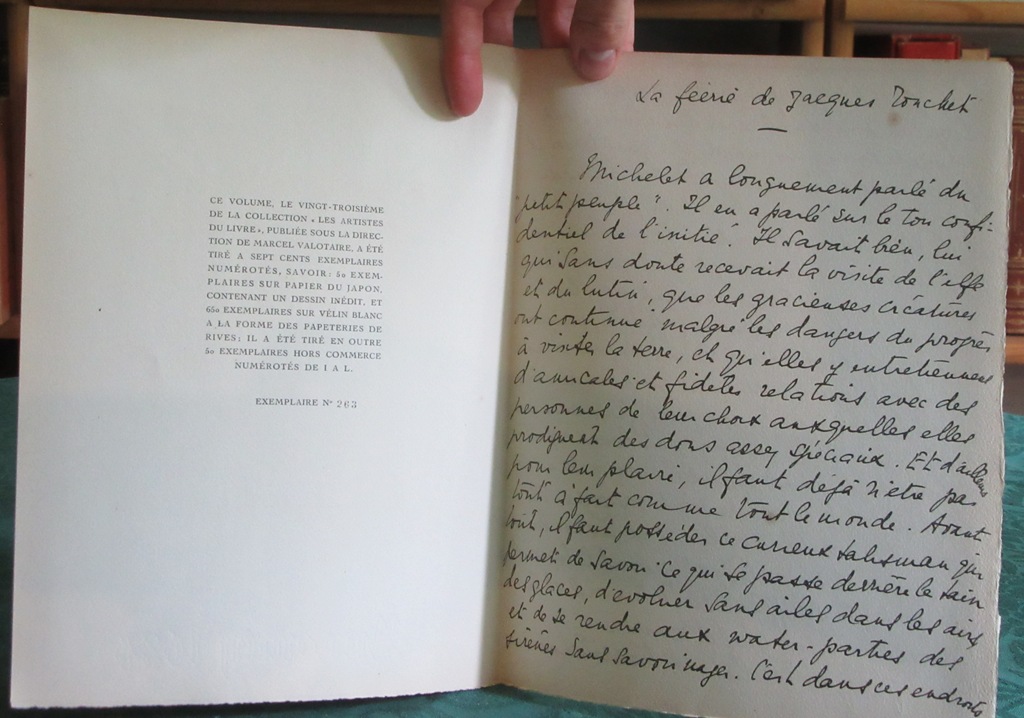 CE VOLUME, LE VINGT-TROISIÈME
DE LA COLLECTION « LES ARTISTES
DU LIVRE », PUBLIÉE SOUS LA DIREC-
TION DE MARCEL VALOTAIRE, A ÉTÉ
TIRÉ A SEPT CENTS EXEMPLAIRES
NUMÉROTÉS, SAVOIR : 50 EXEM-
PLAIRES SUR PAPIER DU JAPON,
CONTENANT UN DESSIN INÉDIT, ET
650 EXEMPLAIRES SUR VÉLIN BLANC
A LA FORME DES PAPETERIES DE
RIVES ; IL A ÉTÉ TIRÉ EN OUTRE
50 EXEMPLAIRES HORS COMMERCE
NUMÉROTÉS DE I A L.
EXEMPLAIRE N° 263
La féerie de Jacques Touchet
Michelet a longuement parlé du
"petit peuple". Il en a parlé sur le ton confi-
dentiel de l'initié. Il savait bien, lui
qui sans doute recevait la visite de l'elfe
et du lutin, que les gracieuses créatures
ont continué malgré les dangers du progrès
à visiter la terre, et qu'elles y entretiennent
d'amicales et fidèles relations avec des
personnes de leur choix auxquelles elles
prodiguent des dons assez spéciaux. Et d'ailleurs
pour leur plaire, il faut déjà n'être pas
tout à fait comme tout le monde. Avant
tout, il faut posséder ce curieux talisman qui
permet de savoir ce qui se passe derrière le tain
des glaces, d'évoluer sans ailes dans les airs
et de se rendre aux water-parties des
sirènes sans savoir nager. C'est dans ces endroits